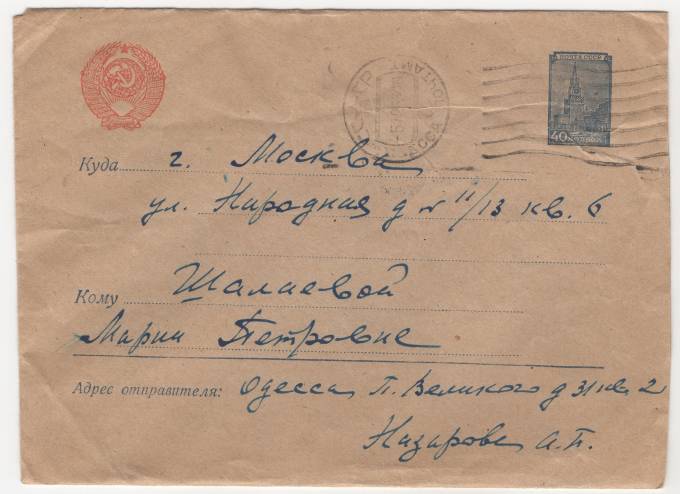 ПОЧТА СССР
40 КОПЕЕК
Куда г. Москва
ул. Народная д № 11/13 кв. 6
Кому Шалаевой
Марии Петровне
Адрес отправителя: Одесса П. Великого д 31 кв. 2
Назарова А.П.